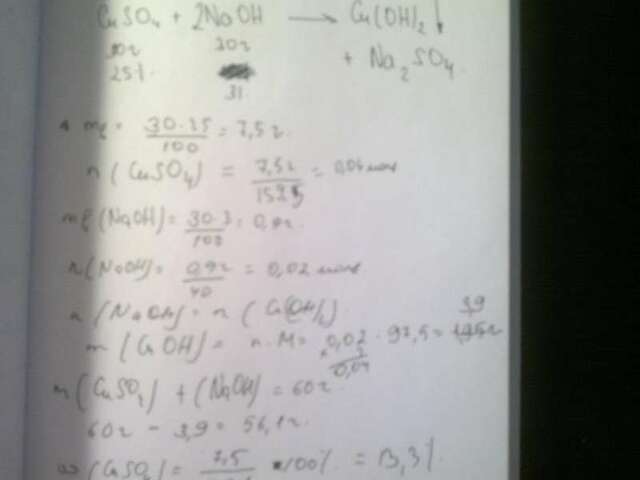 CuSO₄ + 2NaOH → Cu(OH)₂ ↓
30г 30г + Na₂SO₄
25%
3%
30·25/100 = 7,5г
n(CuSO₄) = 7,5г/159,5 = 0,04 моль
(NaOH) = 30·3/100 = 0,9г
n(NaOH) = 0,9г/40 = 0,02 моль
n(NaOH) = n(Cu(OH)₂)
3,9
m(CuOH) = n·M = 0,02 · 97,5 =
0,04
m(CuSO₄) + (NaOH) = 60г
60г - 3,9 = 56,1г
(CuSO₄) = 7,5 100% = 13,3%